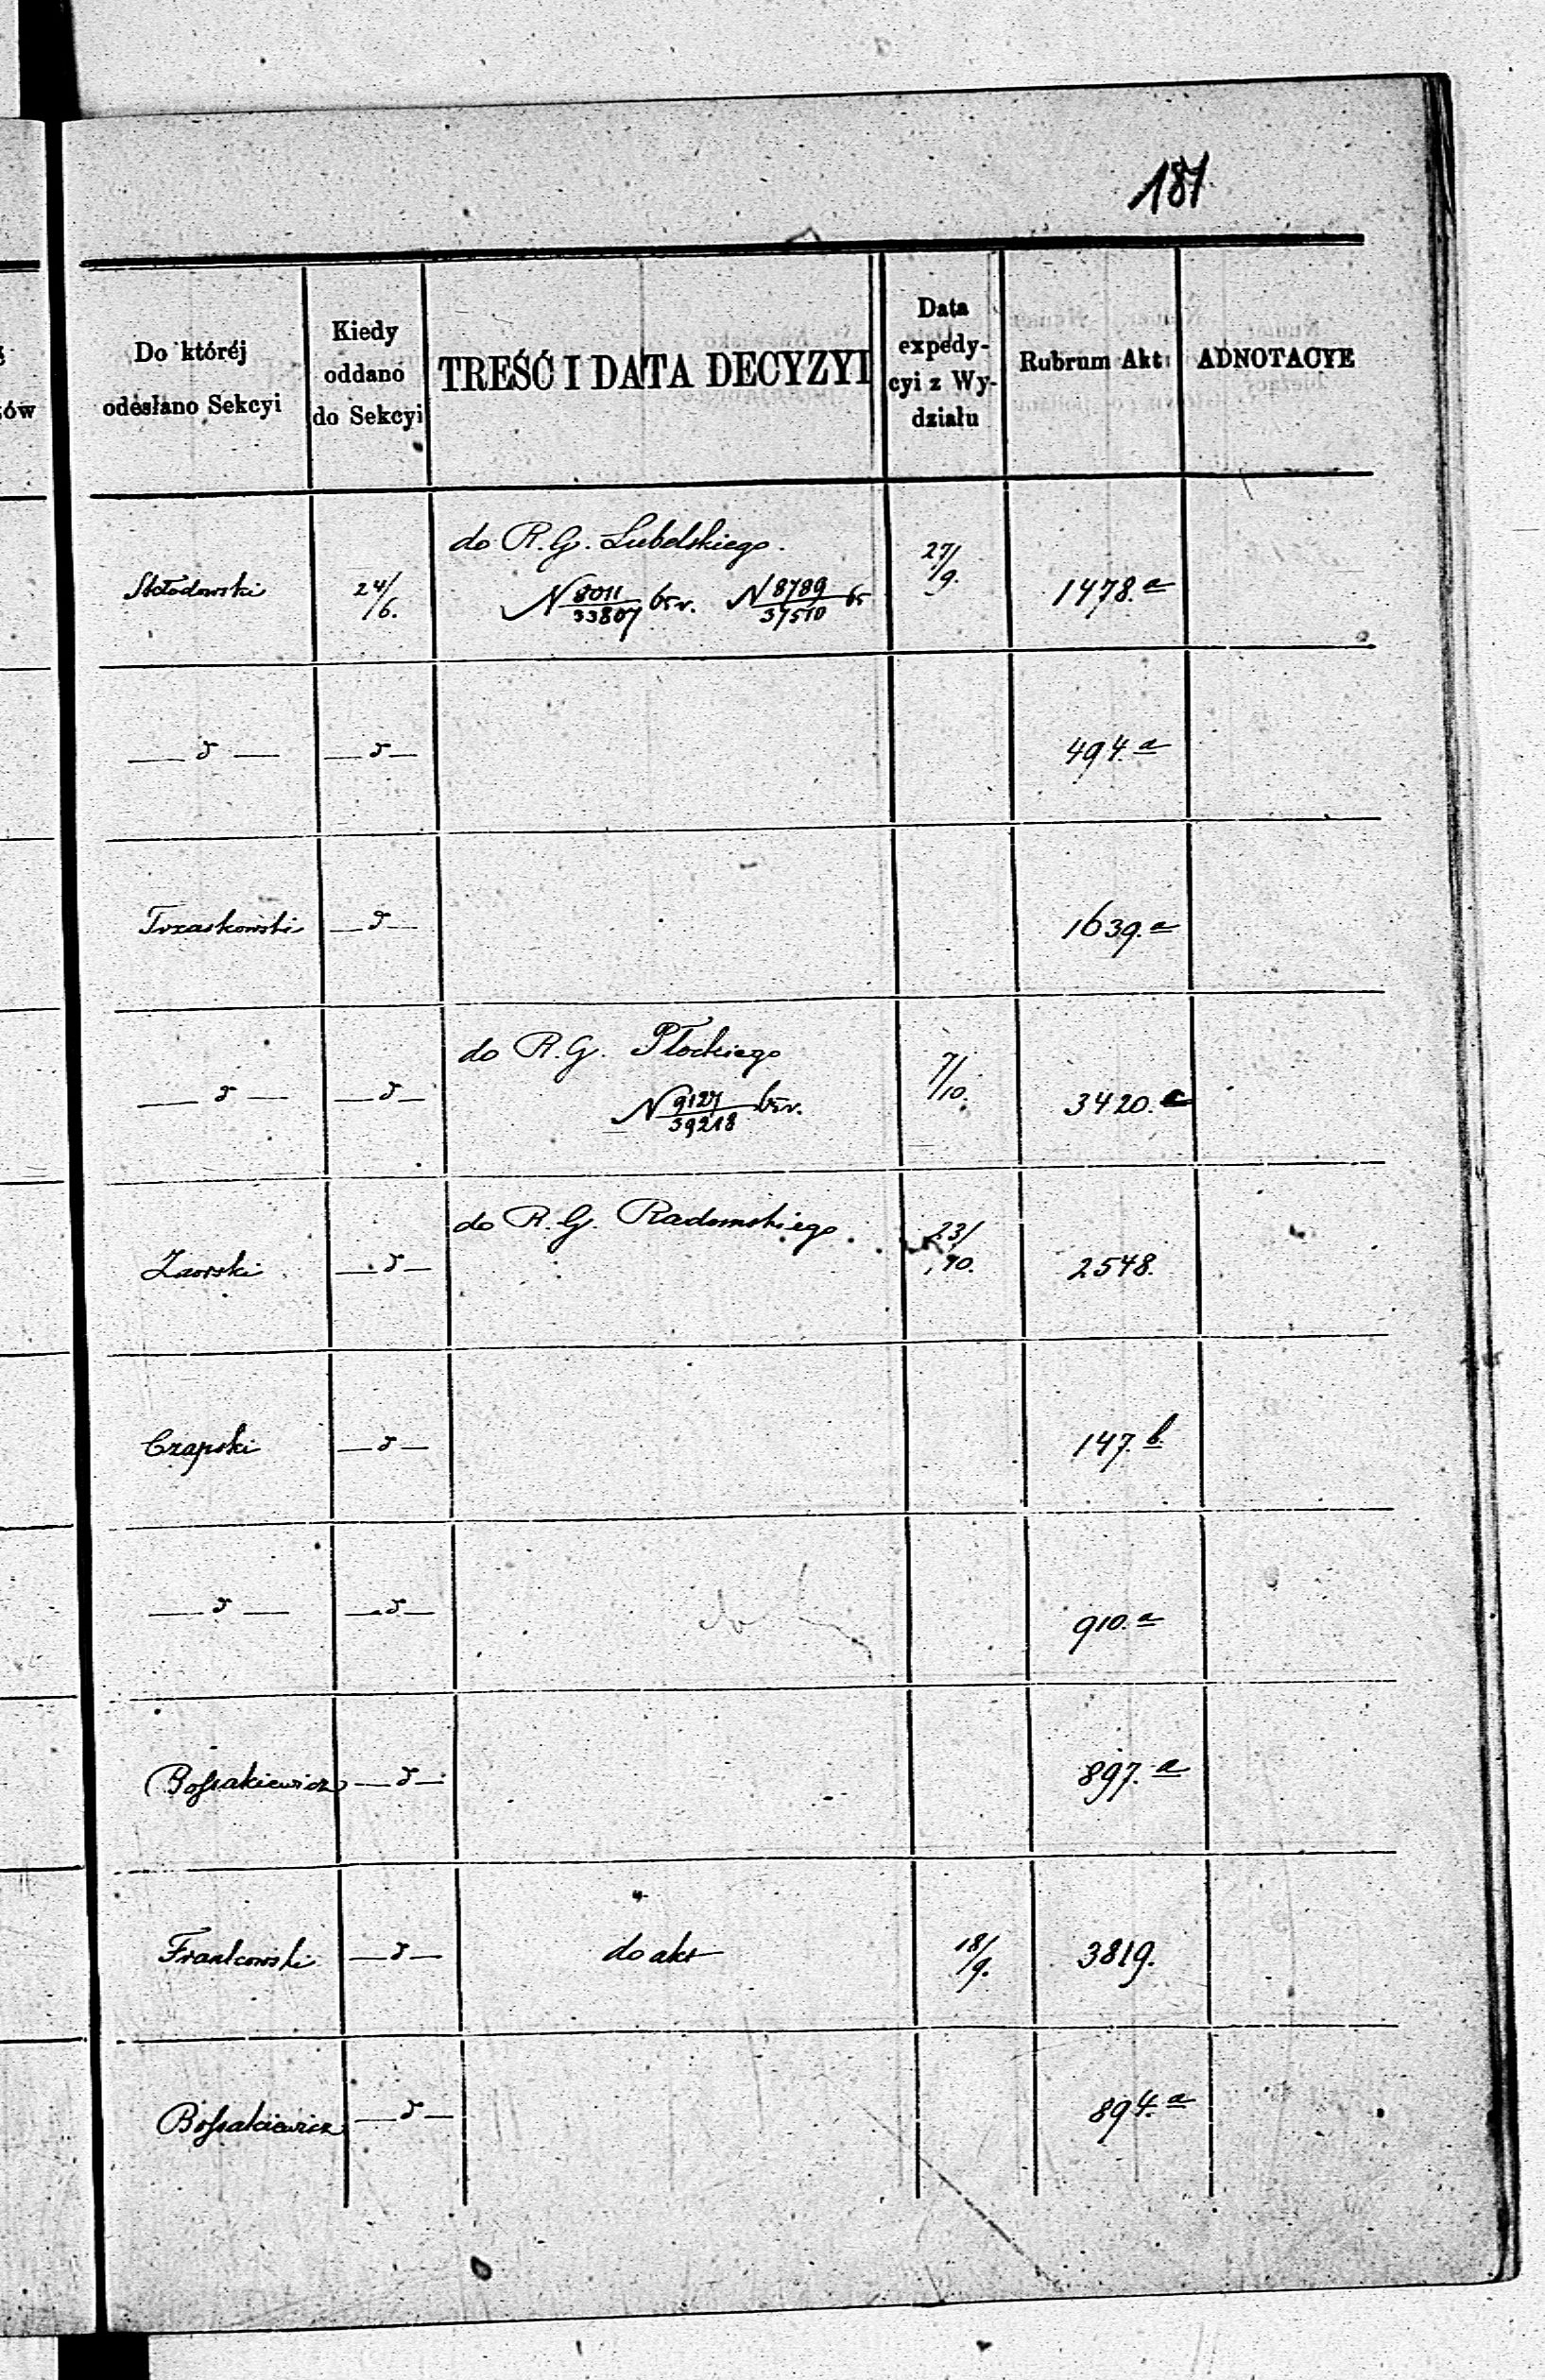 187
Do któréj
odesłano Sekcyi
Kiedy
oddano
do Sekcyi
TREŚĆ I DATA DECYZYI
Data
expedy-
cyi z Wy-
działu
Rubrum Akt
ADNOTACYE
ów
do R. G. Lubelskiego.
Skłodowski 24/6. N 8011/33807 br. N 8789/37510 br 27/9. 1478. a
— d — — d — 494. a
Trzaskowski — d — 1639. a
do R. G. Płockiego
— d — — d — N 9127/39218 br. 7/10. 3420. c
do R. G. Radomskiego.
Zaorski — d — 23/10. 2548.
Czapski — d — 147. b.
— d — — d — do 910. a
Bossakiewicz — d — 897. a
Frankowski — d — do akt 18/9. 3819.
Bossakiewicz — d — 894. a